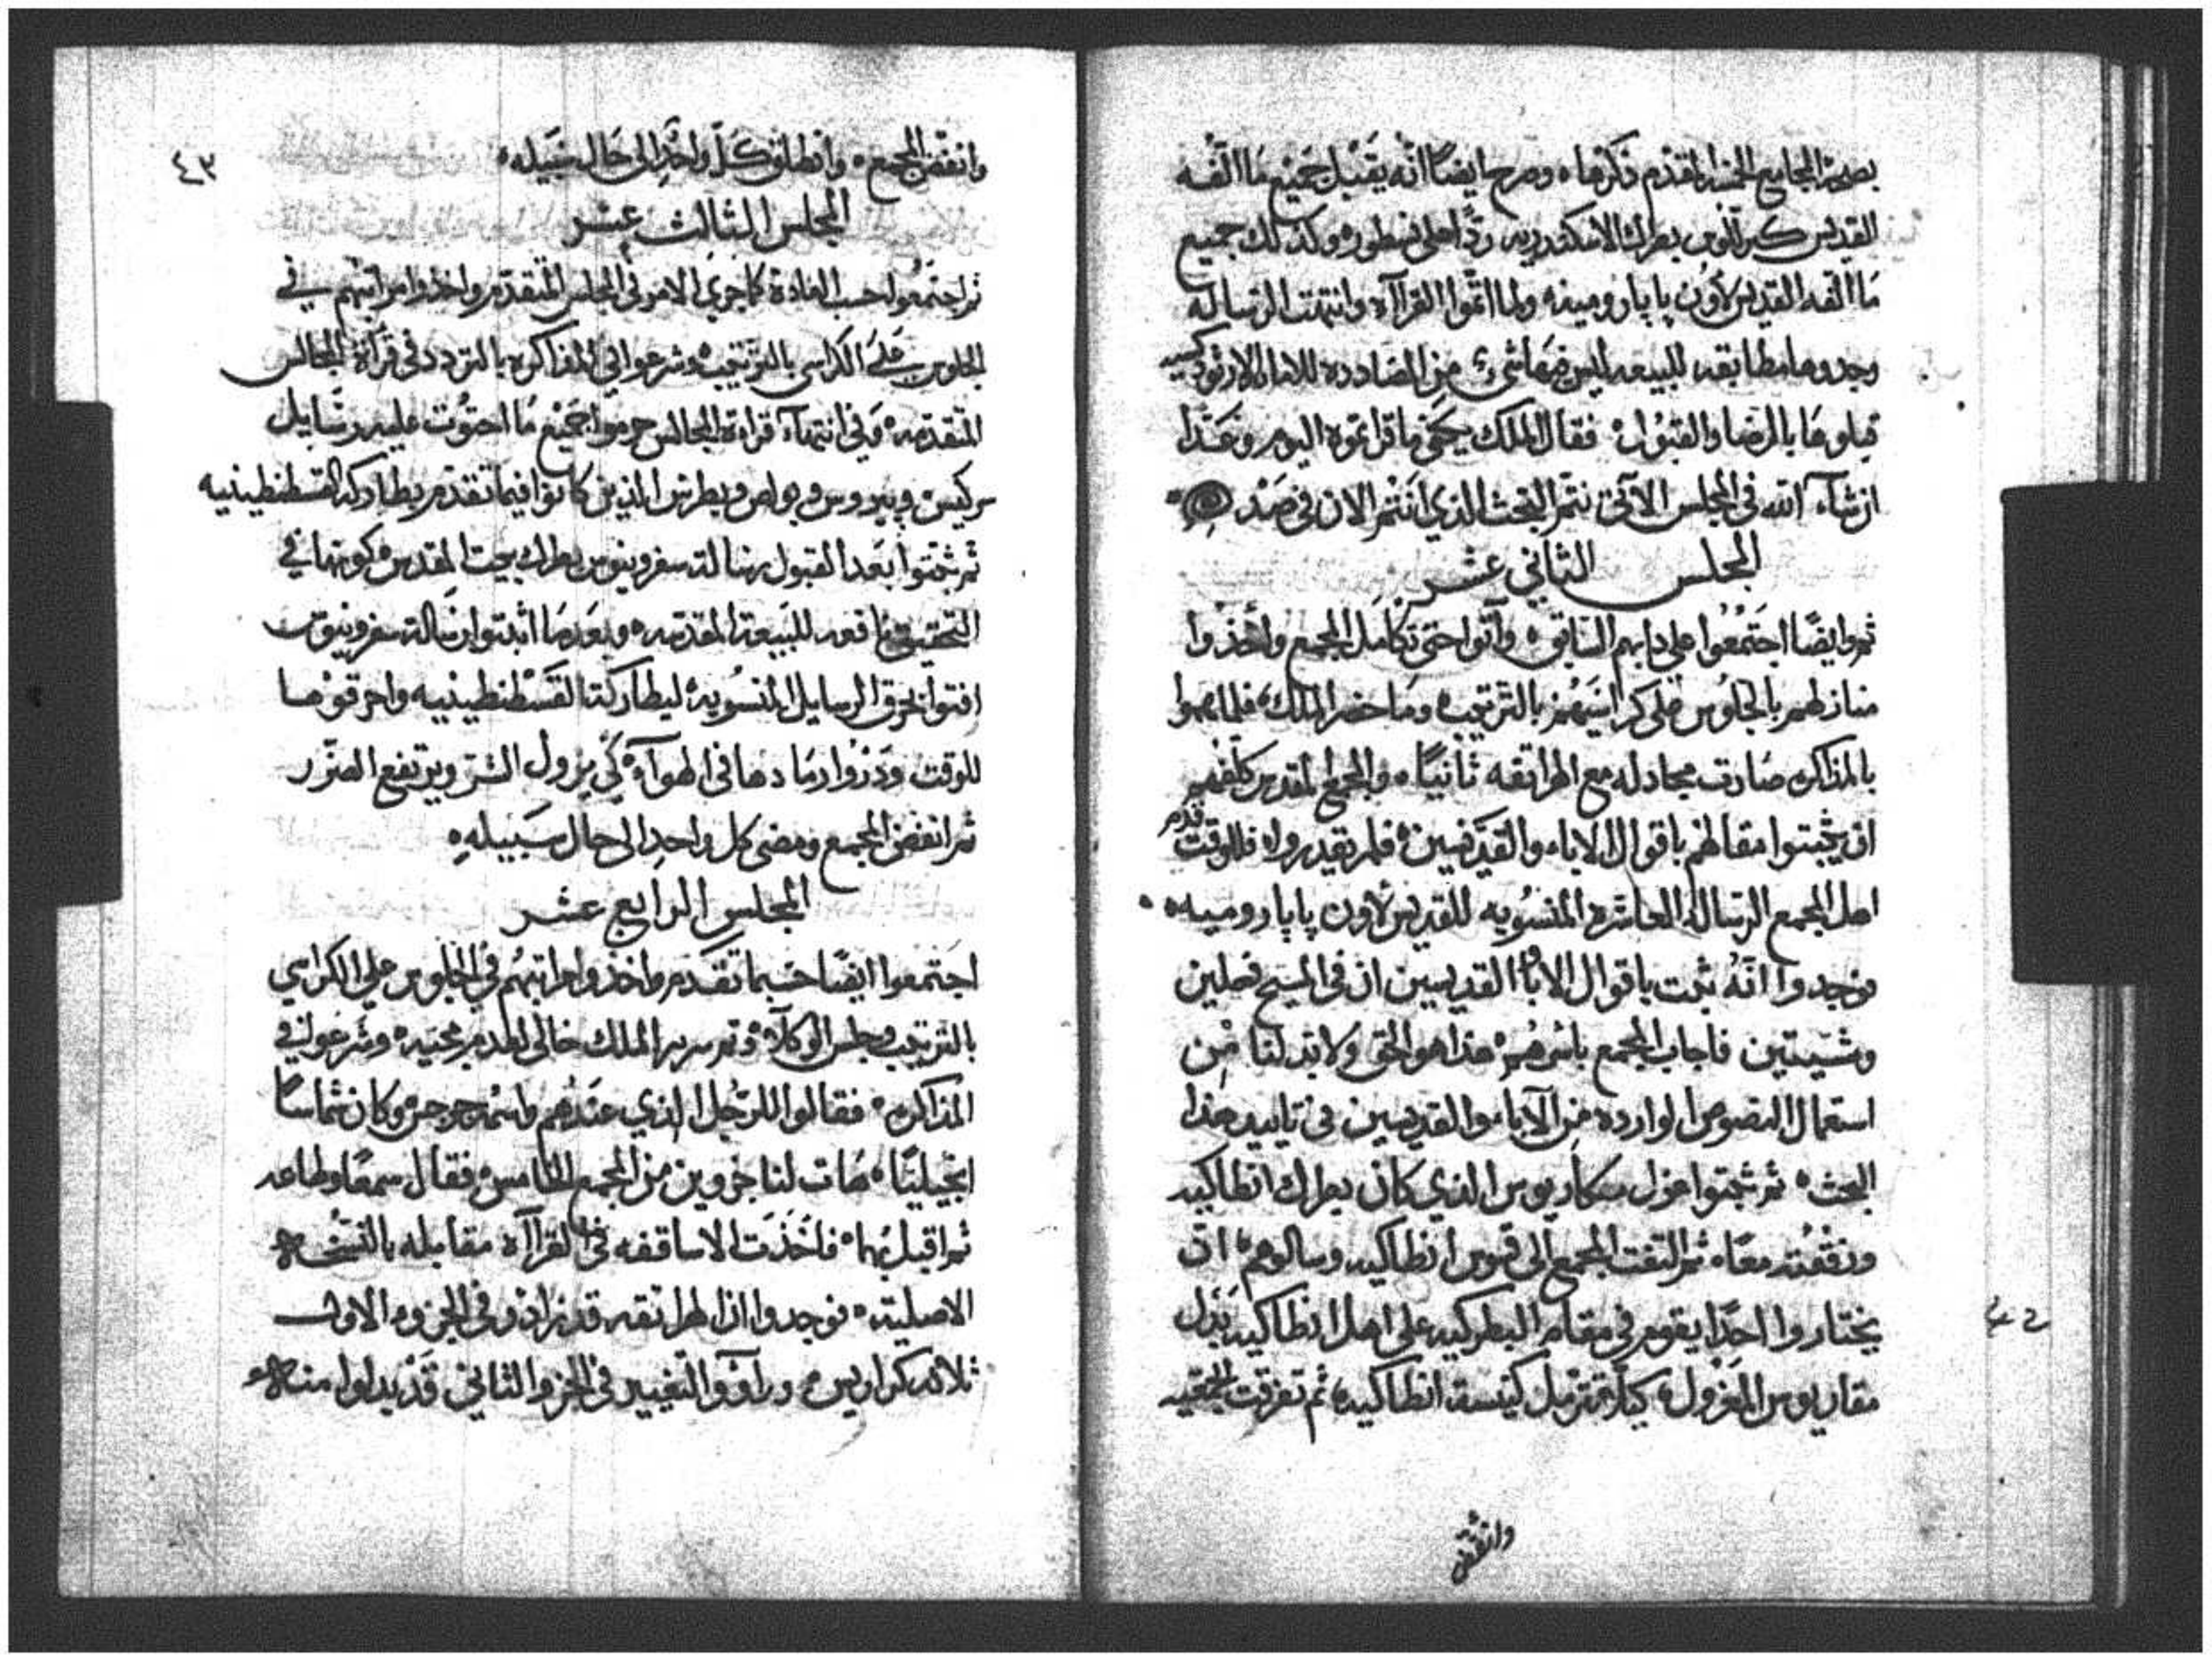 بصحة المجامع الخمسة المتقدم ذكرها ه وصرح ايضًا انه يقبل جميع ما الفه
القديس كيرللوس بطرك الاسكندريه ردًا على نسطوره وكذلك جميع
ما الفه القديس لاون پاپا روميه ه ولما اتموا القرآاه وانتهت الرساله
وجدوها مطابقه للبيعه ليس فيها شيء من المضادده للامانه الارثودكسيه
قبلوها بالرضا والقبول ه فقال الملك يكفى ما قراتموه اليوم وغدًا
ان شآء الله في المجلس الآتي نتمم البحث الذي انتم الان في صدده
المجلس الثاني عشر
ثم وايضًا اجتمعوا على دابهم السابق ه وأتوا حتى تكامل المجمع واخذوا
منازلهم بالجلوس على كراسيهم بالترتيب ه وما حضر الملك ه فلما هموا
بالمذاكره صارت مجادله مع الهراتقه ثانيًا ه والمجمع المقدس كلفهم
ان يثبتوا مقالهم باقوال الاباء والقديسين ه فلم يقدروا ه فللوقت قدم
اهل المجمع الرساله العاشره المنسوبه للقديس لاون پاپا روميه ه
فوجدوا انه ثبت باقوال الاباء القديسين ان في المسيح فعلين
ومشيتين فاجاب المجمع باسرهم ه هذا هو الحق ولابد لنا من
استعمال النصوص الوارده من الآباء والقديسين في تاييد هذا
البحث ه ثم ثبتوا عزل مكاريوس الذي كان بطرك انطاكيه
ورفقته معًا ه ثم التفت المجمع الى قسوس انطاكيه وسالوهم ه ان
يختاروا احدًا يقوم في مقام البطركيه على اهل انطاكيه بدل
مقاريوس المعزول ه كيلا تترمل كنيسة انطاكيه ه ثم تفرقت الجمعيه
وانفض
٤٢
٤٣
وانفض المجمع ه وانطلق كل واحدٍ الى حال سبيله ه
المجلس الثالث عشر
ثم اجتمعوا حسب العادة كما جرى الامر في المجلس المتقدم واخذوا مراتبهم في
الجلوس على الكراسي بالترتيب ه وشرعوا في المذاكره بالتردد في قرآة المجالس
المتقدمه ه وفي انتهآء قراءة المجالس حرموا جميع ما احتوت عليه رسايل
سركيس وپيروس وبولص وبطرس الذين كانوا فيما تقدم بطاركة القسطنطينيه
ثم ثبتوا بعد القبول رسالة سفرونيوس بطرك بيت المقدس كونها في
التحقيق نافعه للبيعة المقدسه ه وبعد ما اثبتوا رسالة سفرونيوس
افتوا بحرق الرسايل المنسوبة لبطاركة القسطنطينيه واحرقوها
للوقت وذرُوا رمادها في الهوآء ه كي يزول الشر ويرتفع الضرر
ثم انفض المجمع ومضى كل واحدٍ الى حال سبيله ه
المجلس الرابع عشر
اجتمعوا ايضًا حسبما تقدم واخذوا مراتبهم في الجلوس على الكراسي
بالترتيب وجلس الوكلآء ه وثم سرير الملك خالى لعدم مجيه ه وشرعوا في
المذاكره ه فقالوا للرجل الذي عندهم واسمه جرجس وكان شماسًا
انجيليًا ه هات لنا جزوين من المجمع الخامس ه فقال سمعًا وطاعه
ثم اقبل بهما ه فاخذت الاساقفه في القرآاه مقابله بالنسخه
الاصليه ه فوجدوا ان الهراتقه قد زادوا في الجزوء الاول
ثلاثه كراريس ه وراؤوا التغيير في الجزو الثاني قد بدلوا منه